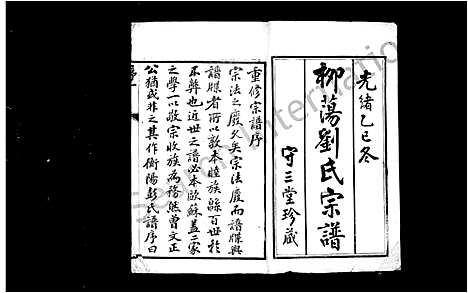 光緒乙巳冬
柳蕩劉氏宗譜
守三堂珍藏
重修宗譜序
宗法之廢久矣宗法廢而譜牒興
譜牒者所以敦本睦族緜百世於
不弊也近世之譜必本歐蘇蓋二家
之學一以敬宗收族為務然曾文正
公猶或非之其作衡陽彭氏譜序曰